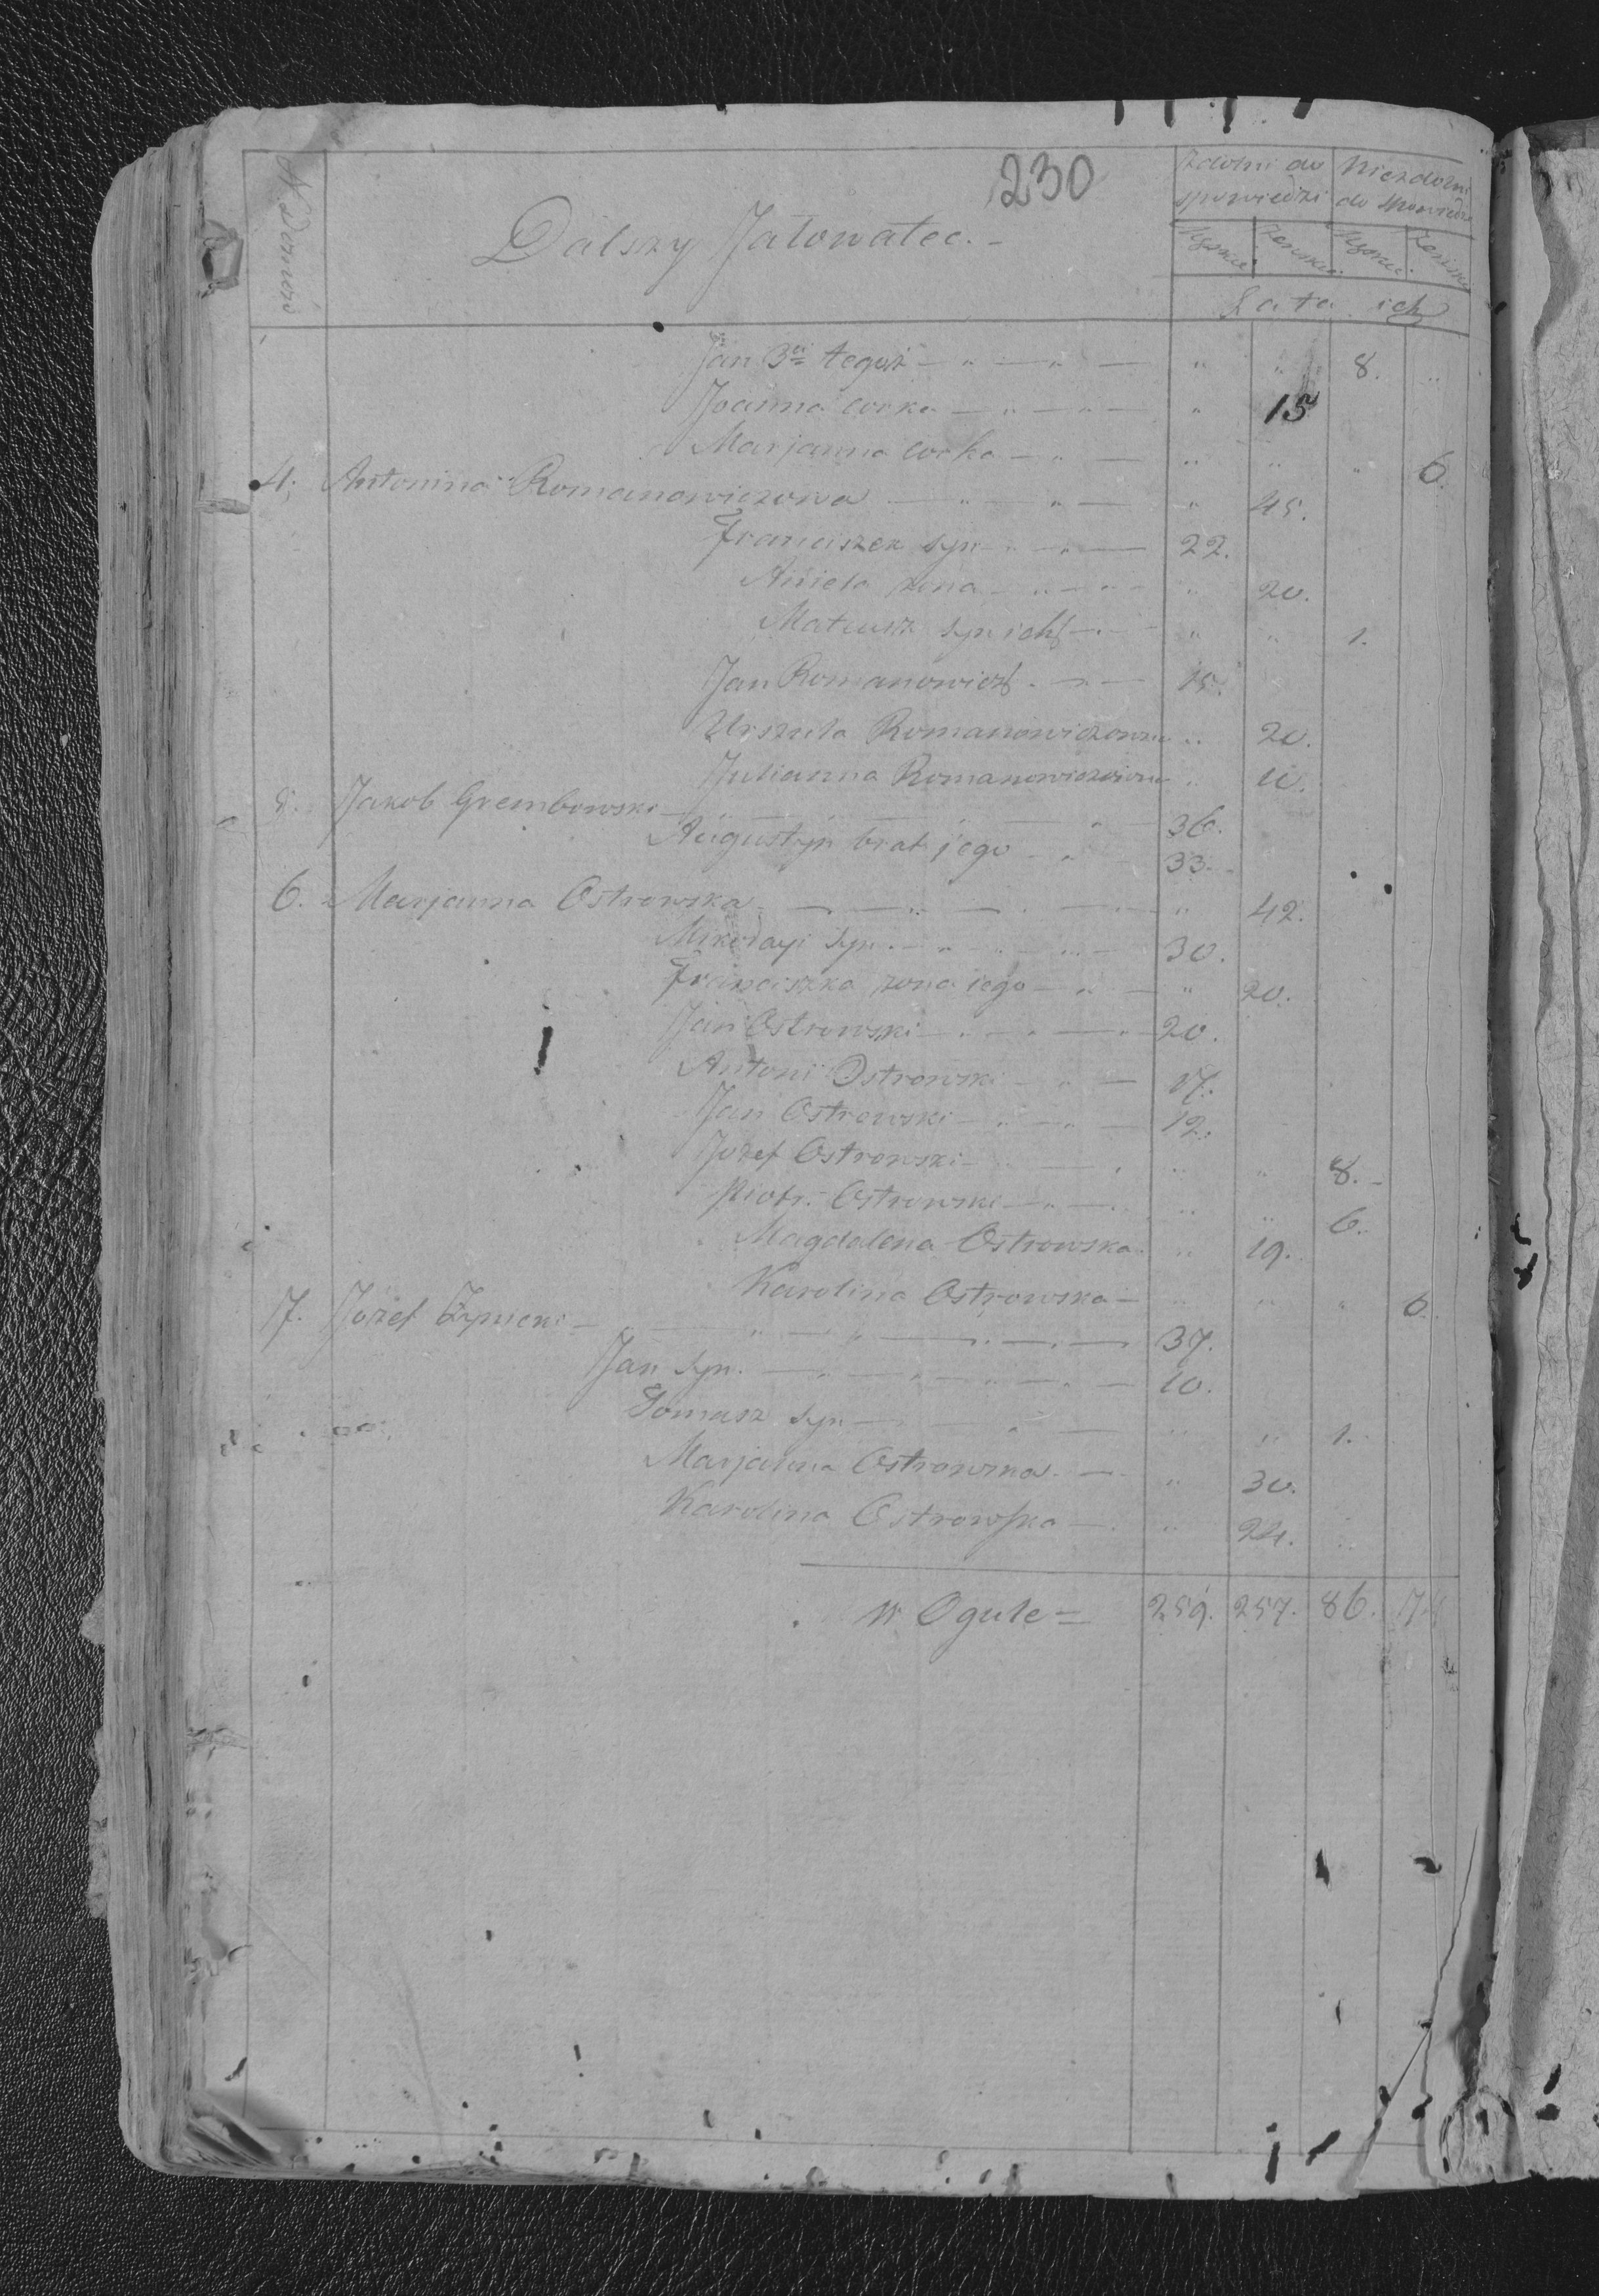 230
N. Domów
Dalszy Jatowatec. -
Zdolni do spowiedzi
Niezdolni do spowiedzi
Męzkie Żeńskie Męzkie Żeńskie
Lata ich
Jan 3ci tegoż — " — " — " " 8. "
Joanna corka — " — " — " 15
Marjanna corka — " — " " " 6.
4. Antonina Romanowiczowa — " — " — " 45.
Franciszek syn — " — 22.
Aniela żona — " — " — " 20.
Mateusz syn ich — " — " " 1.
Jan Romanowicz — " — 15.
Urszula Romanowiczowna " 20.
Julianna Romanowiczowna " 10.
5. Jakob Grembowski — " — " — 36.
Augustyn brat jego — " — 33.
6. Marjanna Ostrowska — " — " — " 42.
Mikołayi syn — " — " — 30.
Franciszka żona iego — " — " 20.
Jan Ostrowski — " — " — 20.
Antoni Ostrowski — " — 17.
Jan Ostrowski — " — " — 12.
Jozef Ostrowski — " — " " 8. -
Piotr Ostrowski — " — " " 6.
Magdalena Ostrowska " 19.
Karolina Ostrowska — " " " 6.
7. Jozef — " — " — " — 37.
Jan syn. — " — " — " — 10.
Tomasz syn — " — " " 1.
Marjanna Ostrowska — " 30.
Karolina Ostrowska — " 24.
w Ogule = 259. 257. 86.